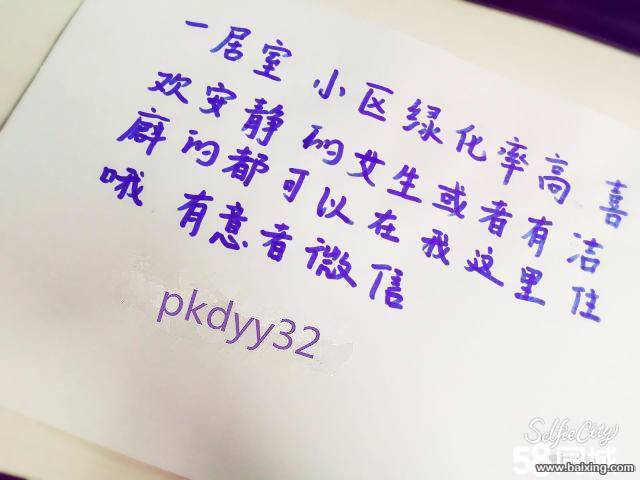 一居室 小区绿化率高 喜
欢安静的女生或者有洁
癖的都可以在我这里住
哦 有意者微信
pkdyy32
SelfieCity
58同城
www.baixing.com